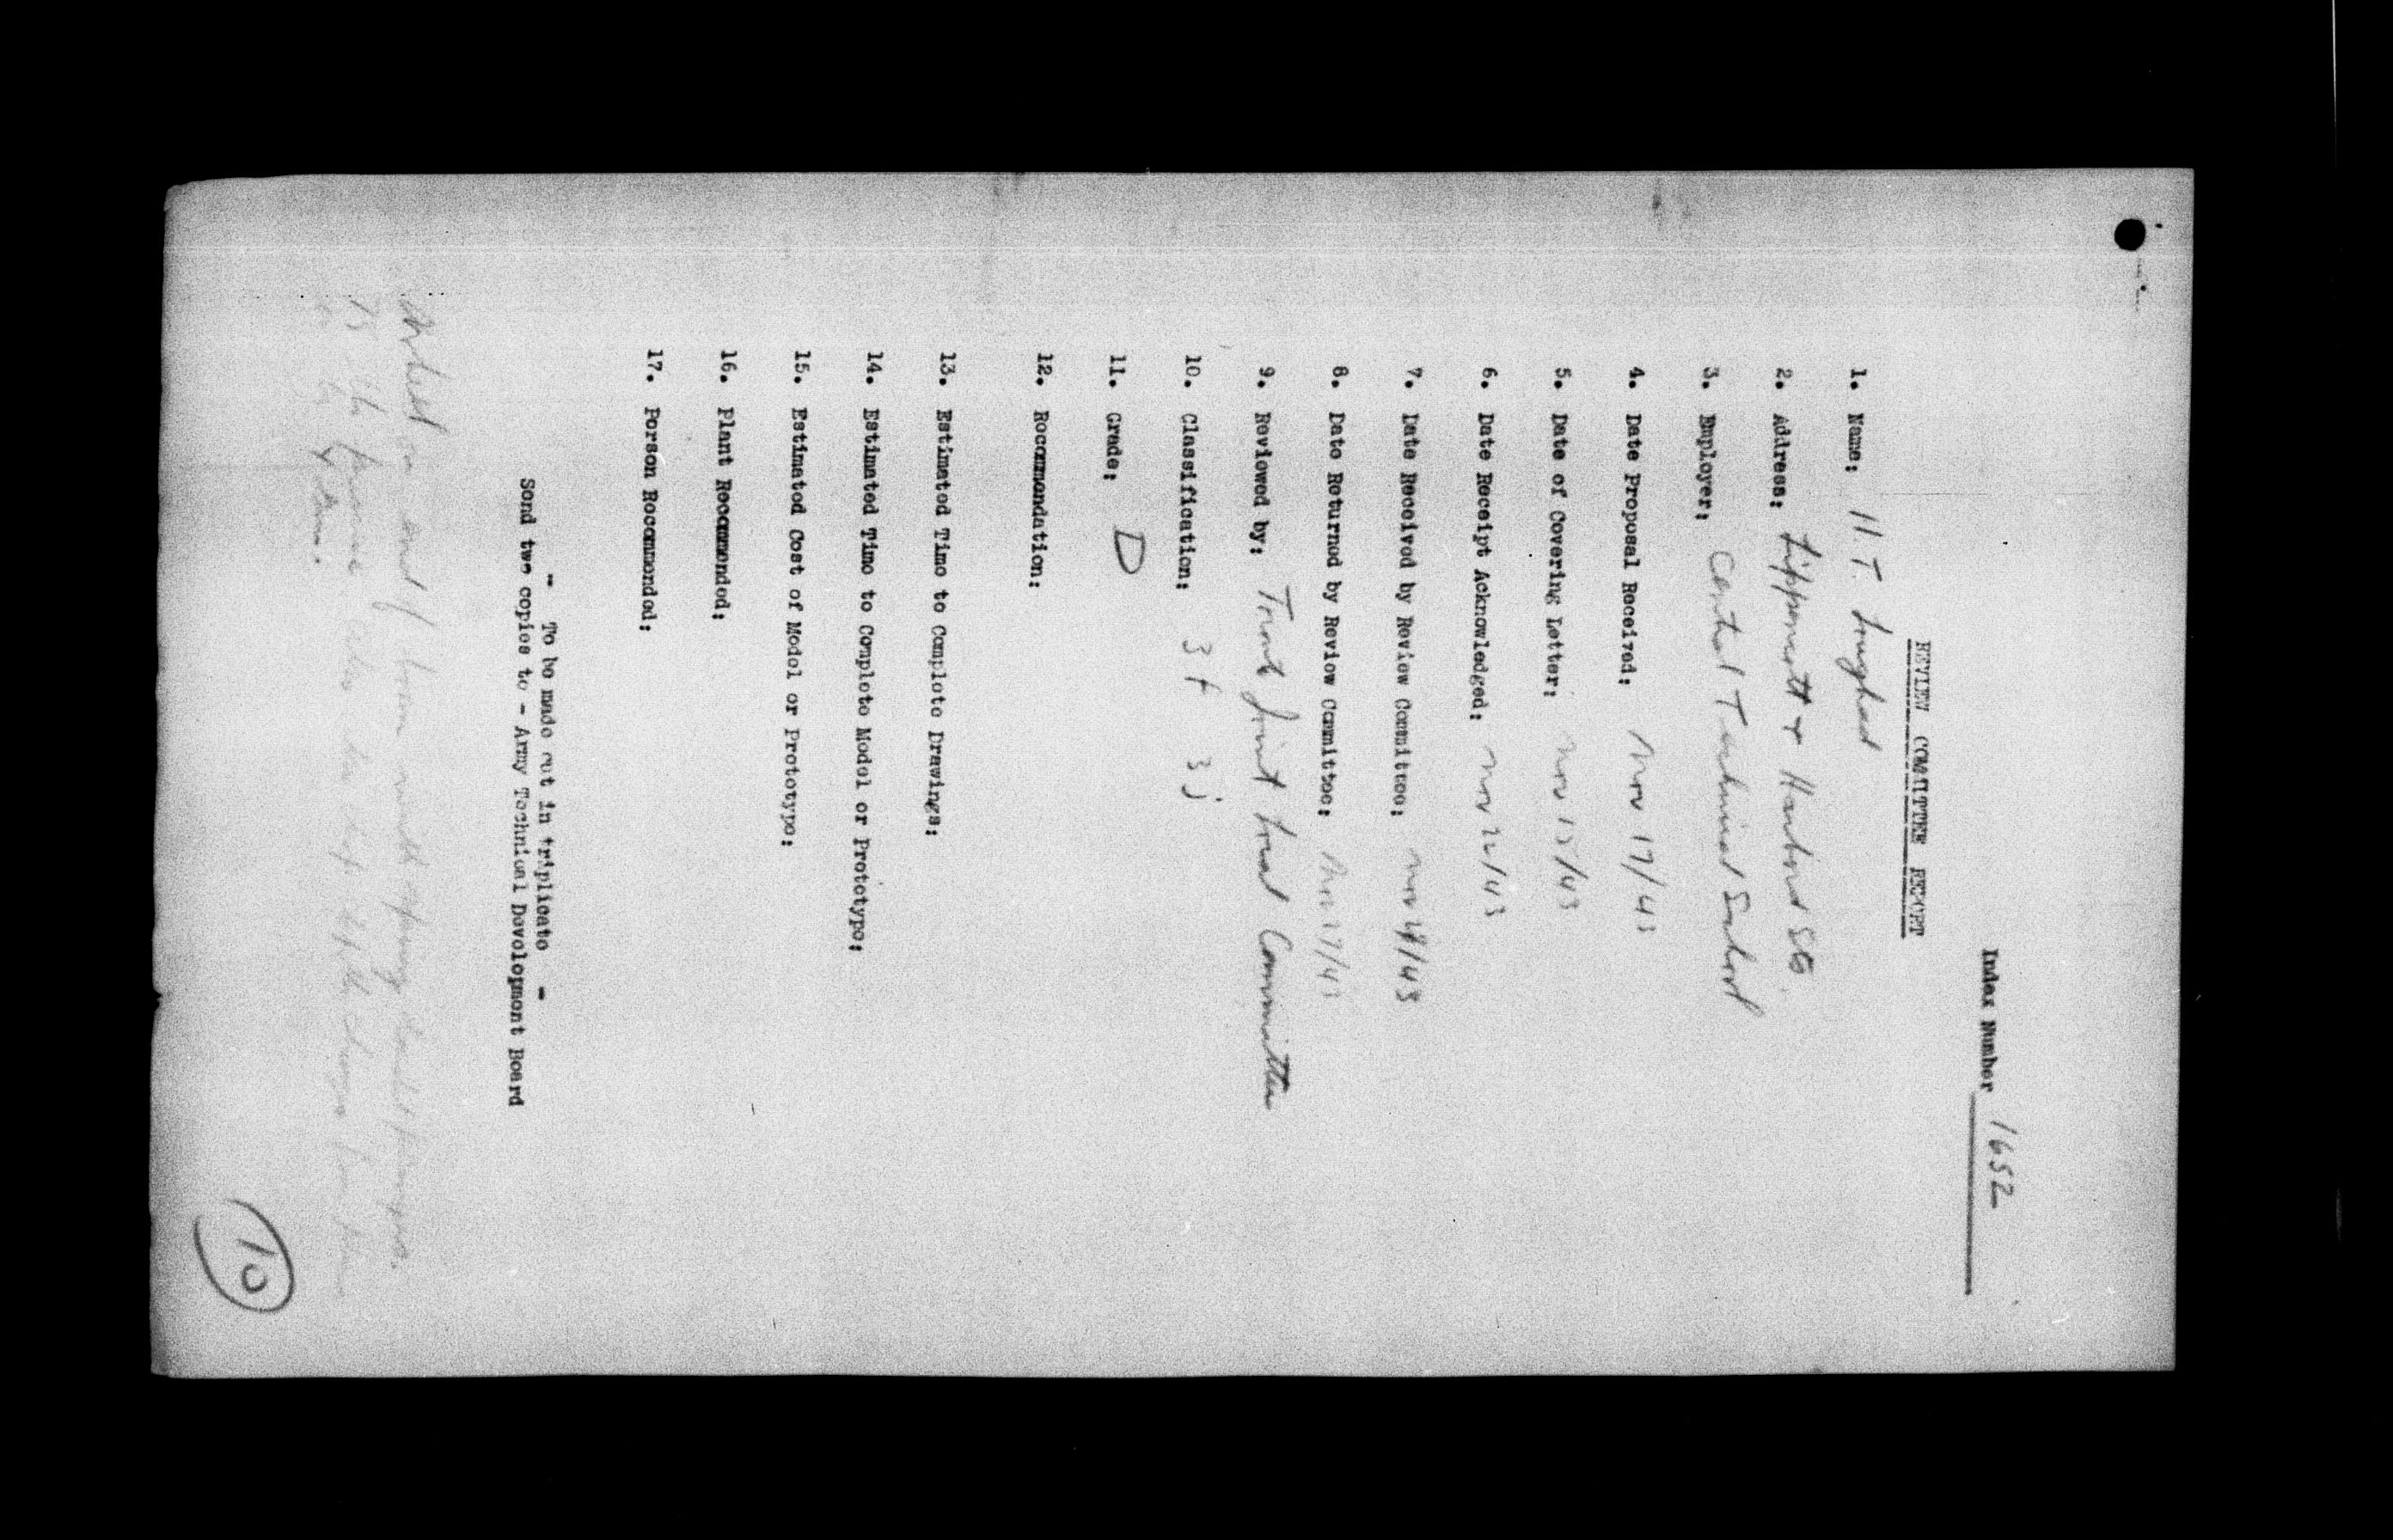 Index Number 1652
REVIEW COMMITTEE REPORT
1. Name: H.T. Lougheed
2. Address: Lippincott & Harbord Sts.
3. Employer: Central Technical School
4. Date Proposal Received: Nov 17/43
5. Date of Covering Letter: Nov 15/43
6. Date Receipt Acknowledged: Nov 22/43
7. Date Received by Review Committee: Nov 24/43
8. Date Returned by Review Committee: Nov 27/43
9. Reviewed by: Toronto Joint Local Committee
10. Classification: 3 f 3 j
11. Grade: D
12. Recommendation:
13. Estimated Time to Complete Drawings:
14. Estimated Time to Complete Model or Prototype:
15. Estimated Cost of Model or Prototype:
16. Plant Recommended:
17. Person Recommended:
- To be made out in triplicate -
Send two copies to - Army Technical Development Board
on end of boom with spring
the
10